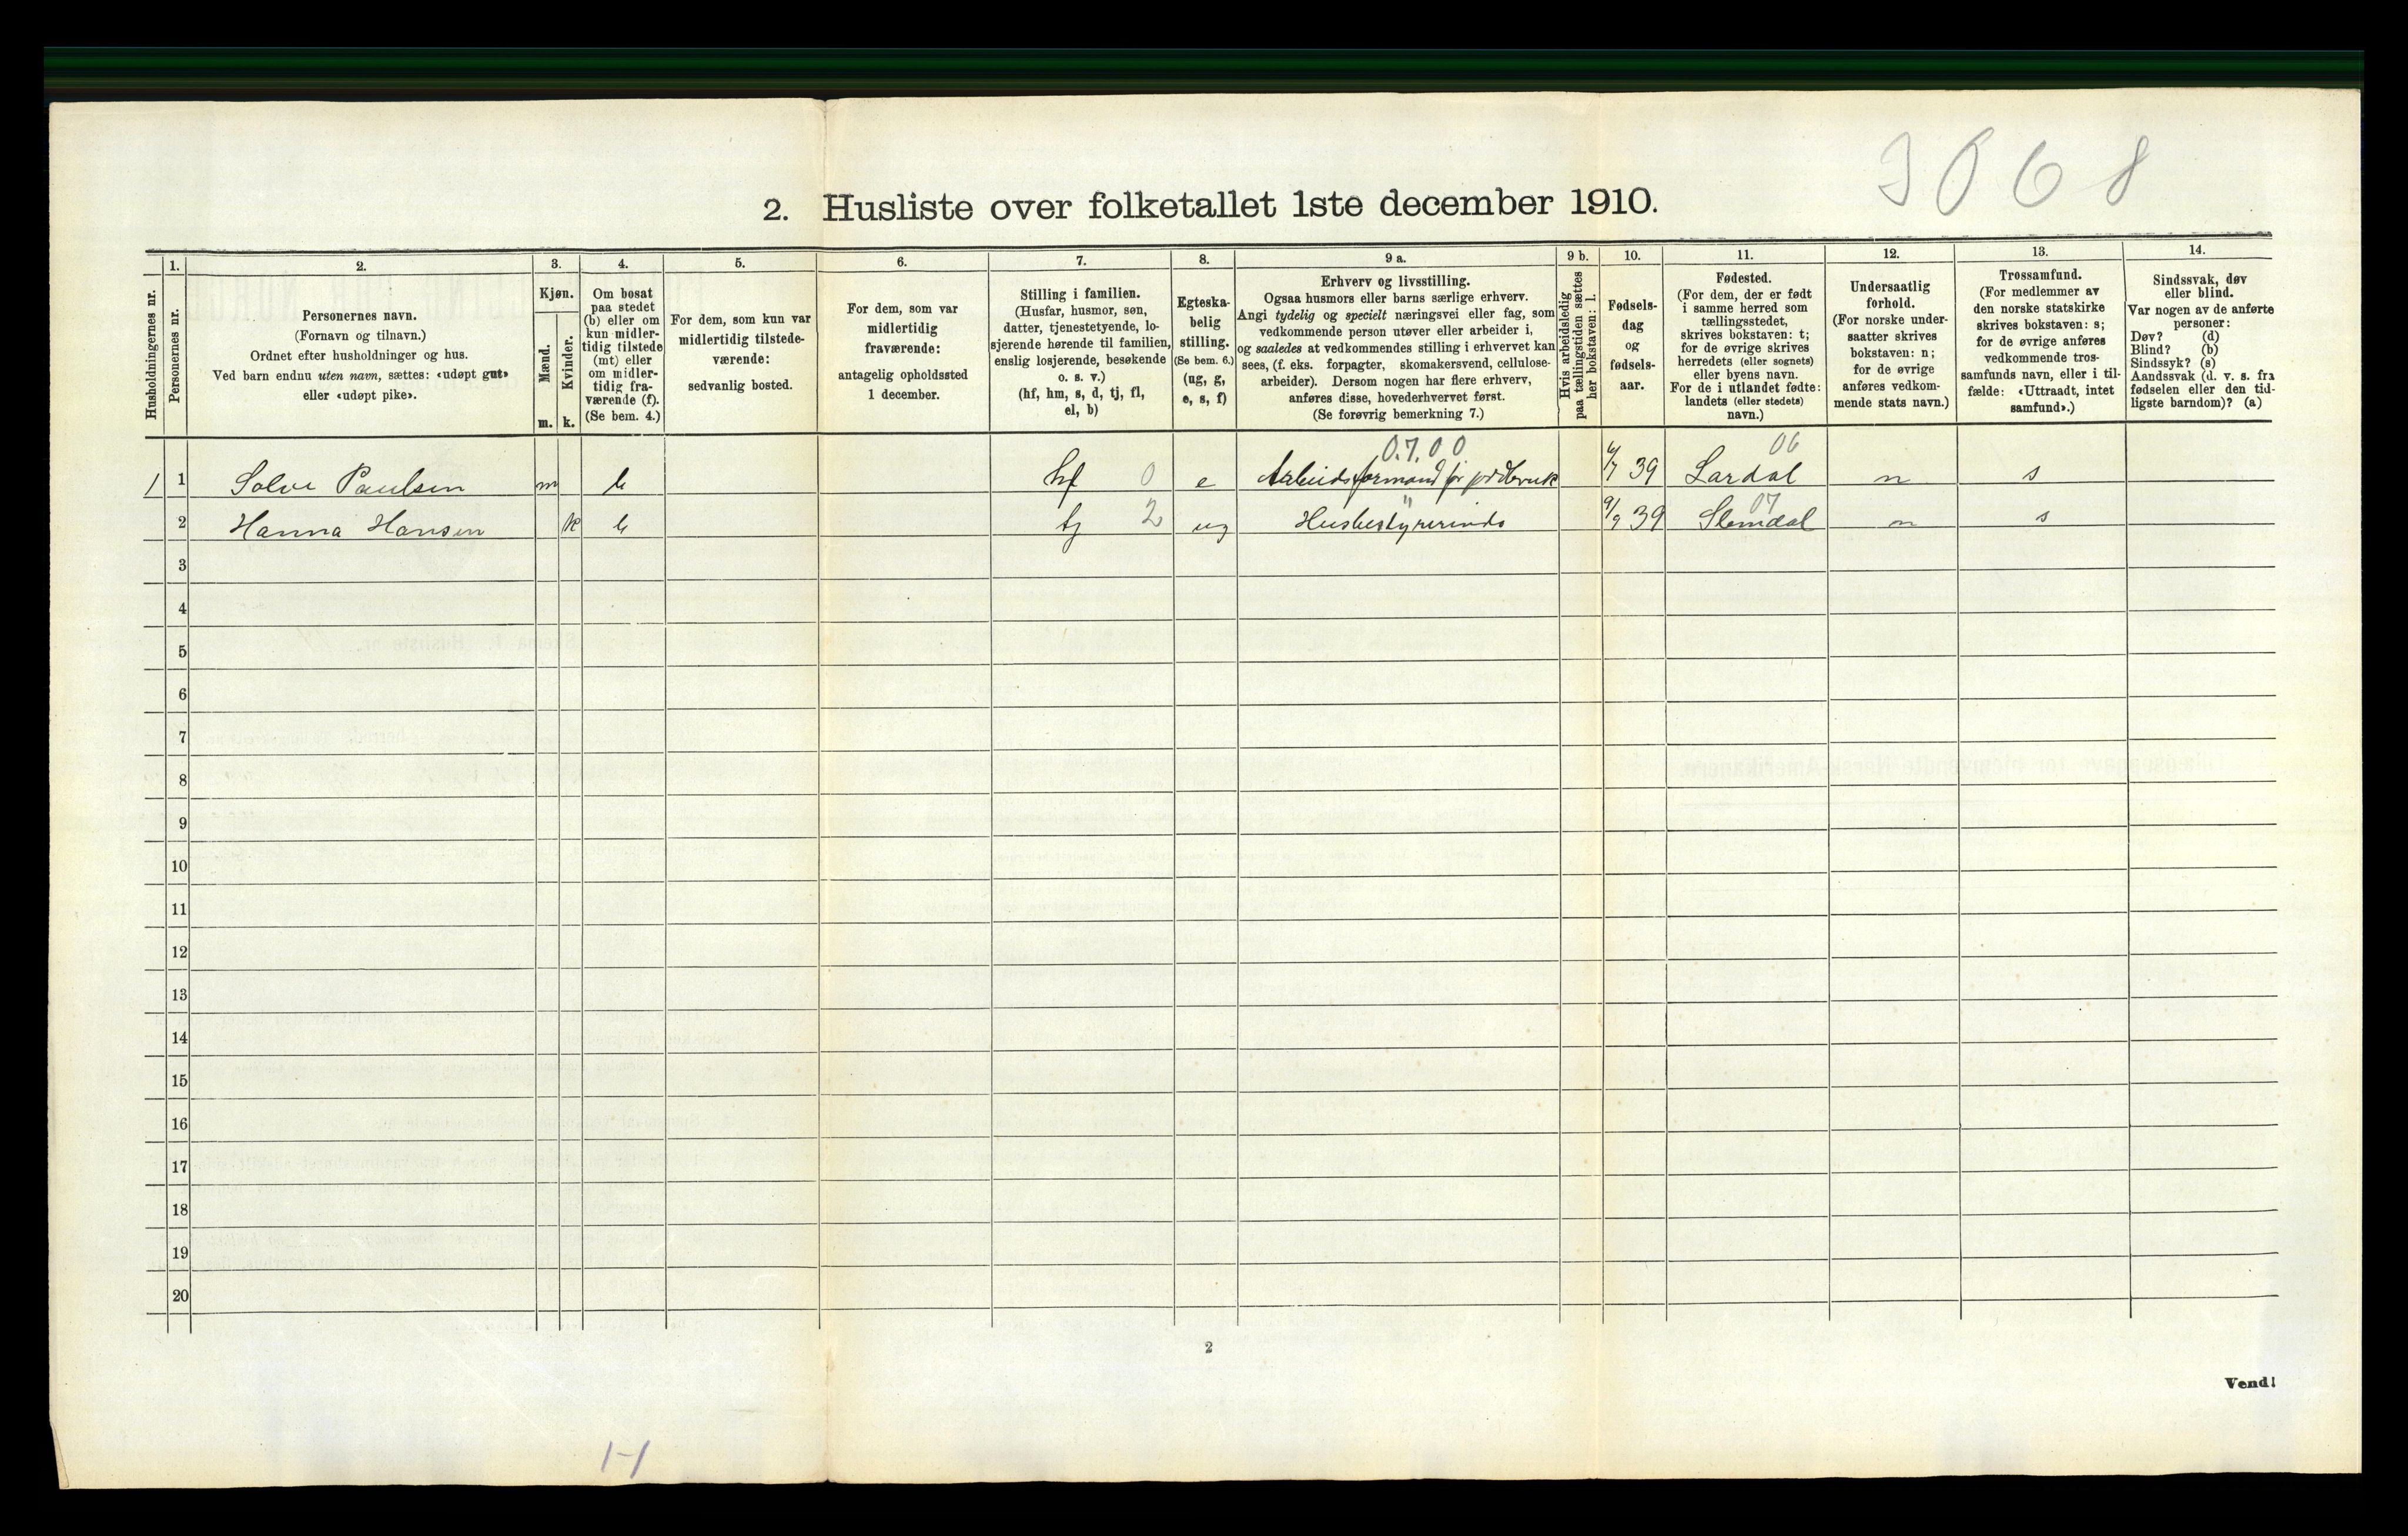 3068
2. Husliste over folketallet 1ste december 1910.
Husholdningernes nr.
1.
Personernes nr.
2.
Personernes navn.
(Fornavn og tilnavn.)
Ordnet efter husholdninger og hus.
Ved barn endnu uten navn, sættes: «udøpt gut»
eller «udøpt pike».
3.
Kjøn.
Mænd.
Kvinder.
m. k.
4.
Om bosat
paa stedet
(b) eller om
kun midler-
tidig tilstede
(mt) eller
om midler-
tidig fra-
værende (f).
(Se bem. 4.)
5.
For dem, som kun var
midlertidig tilstede-
værende:
sedvanlig bosted.
6.
For dem, som var
midlertidig
fraværende:
antagelig opholdssted
1 december.
7.
Stilling i familien.
(Husfar, husmor, søn,
datter, tjenestetyende, lo-
sjerende hørende til familien,
enslig losjerende, besøkende
o. s. v.)
(hf, hm, s, d, tj, fl,
el, b)
8.
Egteska-
belig
stilling.
(Se bem. 6.)
(ug, g,
e, s, f)
9 a.
Erhverv og livsstilling.
Ogsaa husmors eller barns særlige erhverv.
Angi tydelig og specielt næringsvei eller fag, som
vedkommende person utøver eller arbeider i,
og saaledes at vedkommendes stilling i erhvervet kan
sees, (f. eks. forpagter, skomakersvend, cellulose-
arbeider). Dersom nogen har flere erhverv,
anføres disse, hovederhvervet først.
(Se forøvrig bemerkning 7.)
9 b.
Hvis arbeidsledig
paa tællingstiden sættes
her bokstaven: l.
10.
Fødsels-
dag
og
fødsels-
aar.
11.
Fødested.
(For dem, der er født
i samme herred som
tællingsstedet,
skrives bokstaven: t;
for de øvrige skrives
herredets (eller sognets)
eller byens navn.
For de i utlandet fødte:
landets (eller stedets)
navn.)
12.
Undersaatlig
forhold.
(For norske under-
saatter skrives
bokstaven: n;
for de øvrige
anføres vedkom-
mende stats navn.)
13.
Trossamfund.
(For medlemmer av
den norske statskirke
skrives bokstaven: s;
for de øvrige anføres
vedkommende tros-
samfunds navn, eller i til-
fælde: «Uttraadt, intet
samfund».)
14.
Sindssvak, døv
eller blind.
Var nogen av de anførte
personer:
Døv? (d)
Blind? (b)
Sindssyk? (s)
Aandssvak (d. v. s. fra
fødselen eller den tid-
ligste barndom)? (a)
0.7.00 06
1 1 Solve Paulsen m b hf 0 e Arbeidsformand for jordbruk 39 Lardal n s
" 07
2 Hanna Hansen k b tj 2 ug Husbestyrerinde 9/9 39 Slemdal n s
3
4
5
6
7
8
9
10
11
12
13
14
15
16
17
18
19
20
2
Vend!
1-1